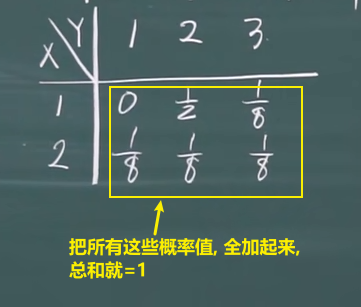 X\Y 1 2 3
1 0 1/2 1/8
2 1/8 1/8 1/8
把所有这些概率值, 全加起来,
总和就=1